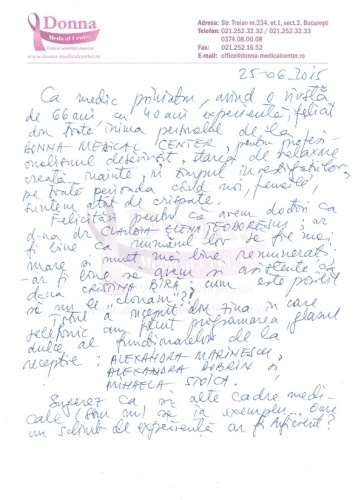 Donna
Medical Center
www.donna-medicalcenter.ro
Adresa: Str. Traian nr.234, et.1, sect.2, București
Telefon: 021.252.32.32 / 021.252.32.33
0374.08.00.08
Fax: 021.252.16.52
E-mail: office@donna-medicalcenter.ro
25-06-2015
Ca medic primar, având o vârstă
de 66 ani cu 40 ani experiență, felicit
din toată inima personalul de la
DONNA MEDICAL CENTER, pentru profesi-
onalismul desăvârșit, starea de relaxare
creată înainte, în timpul investigațiilor,
pe toată perioada când noi, femeile,
suntem atât de crispate.
Felicitări pentru că avem doctori ca
d-na dr CLAUDIA ELENA TEODORESCU; ar
fi bine ca numărul lor să fie mai
mare și mult mai bine remunerați.
-ar fi bine să avem și asistente ca
d-na CRISTINA BÎRĂ; cum este posibil
să nu le "clonăm"?
Totul a început din ziua în care
telefonic am făcut programarea glasul
dulce al funcționarelor de la
recepție: ALEXANDRA MARINESCU,
ALEXANDRA DIBRIN și
MIHAELA STOICA.
Sugerez ca și alte cadre medi-
cale (sau nu) să ia exemplu... Oare
un schimb de experiență ar fi